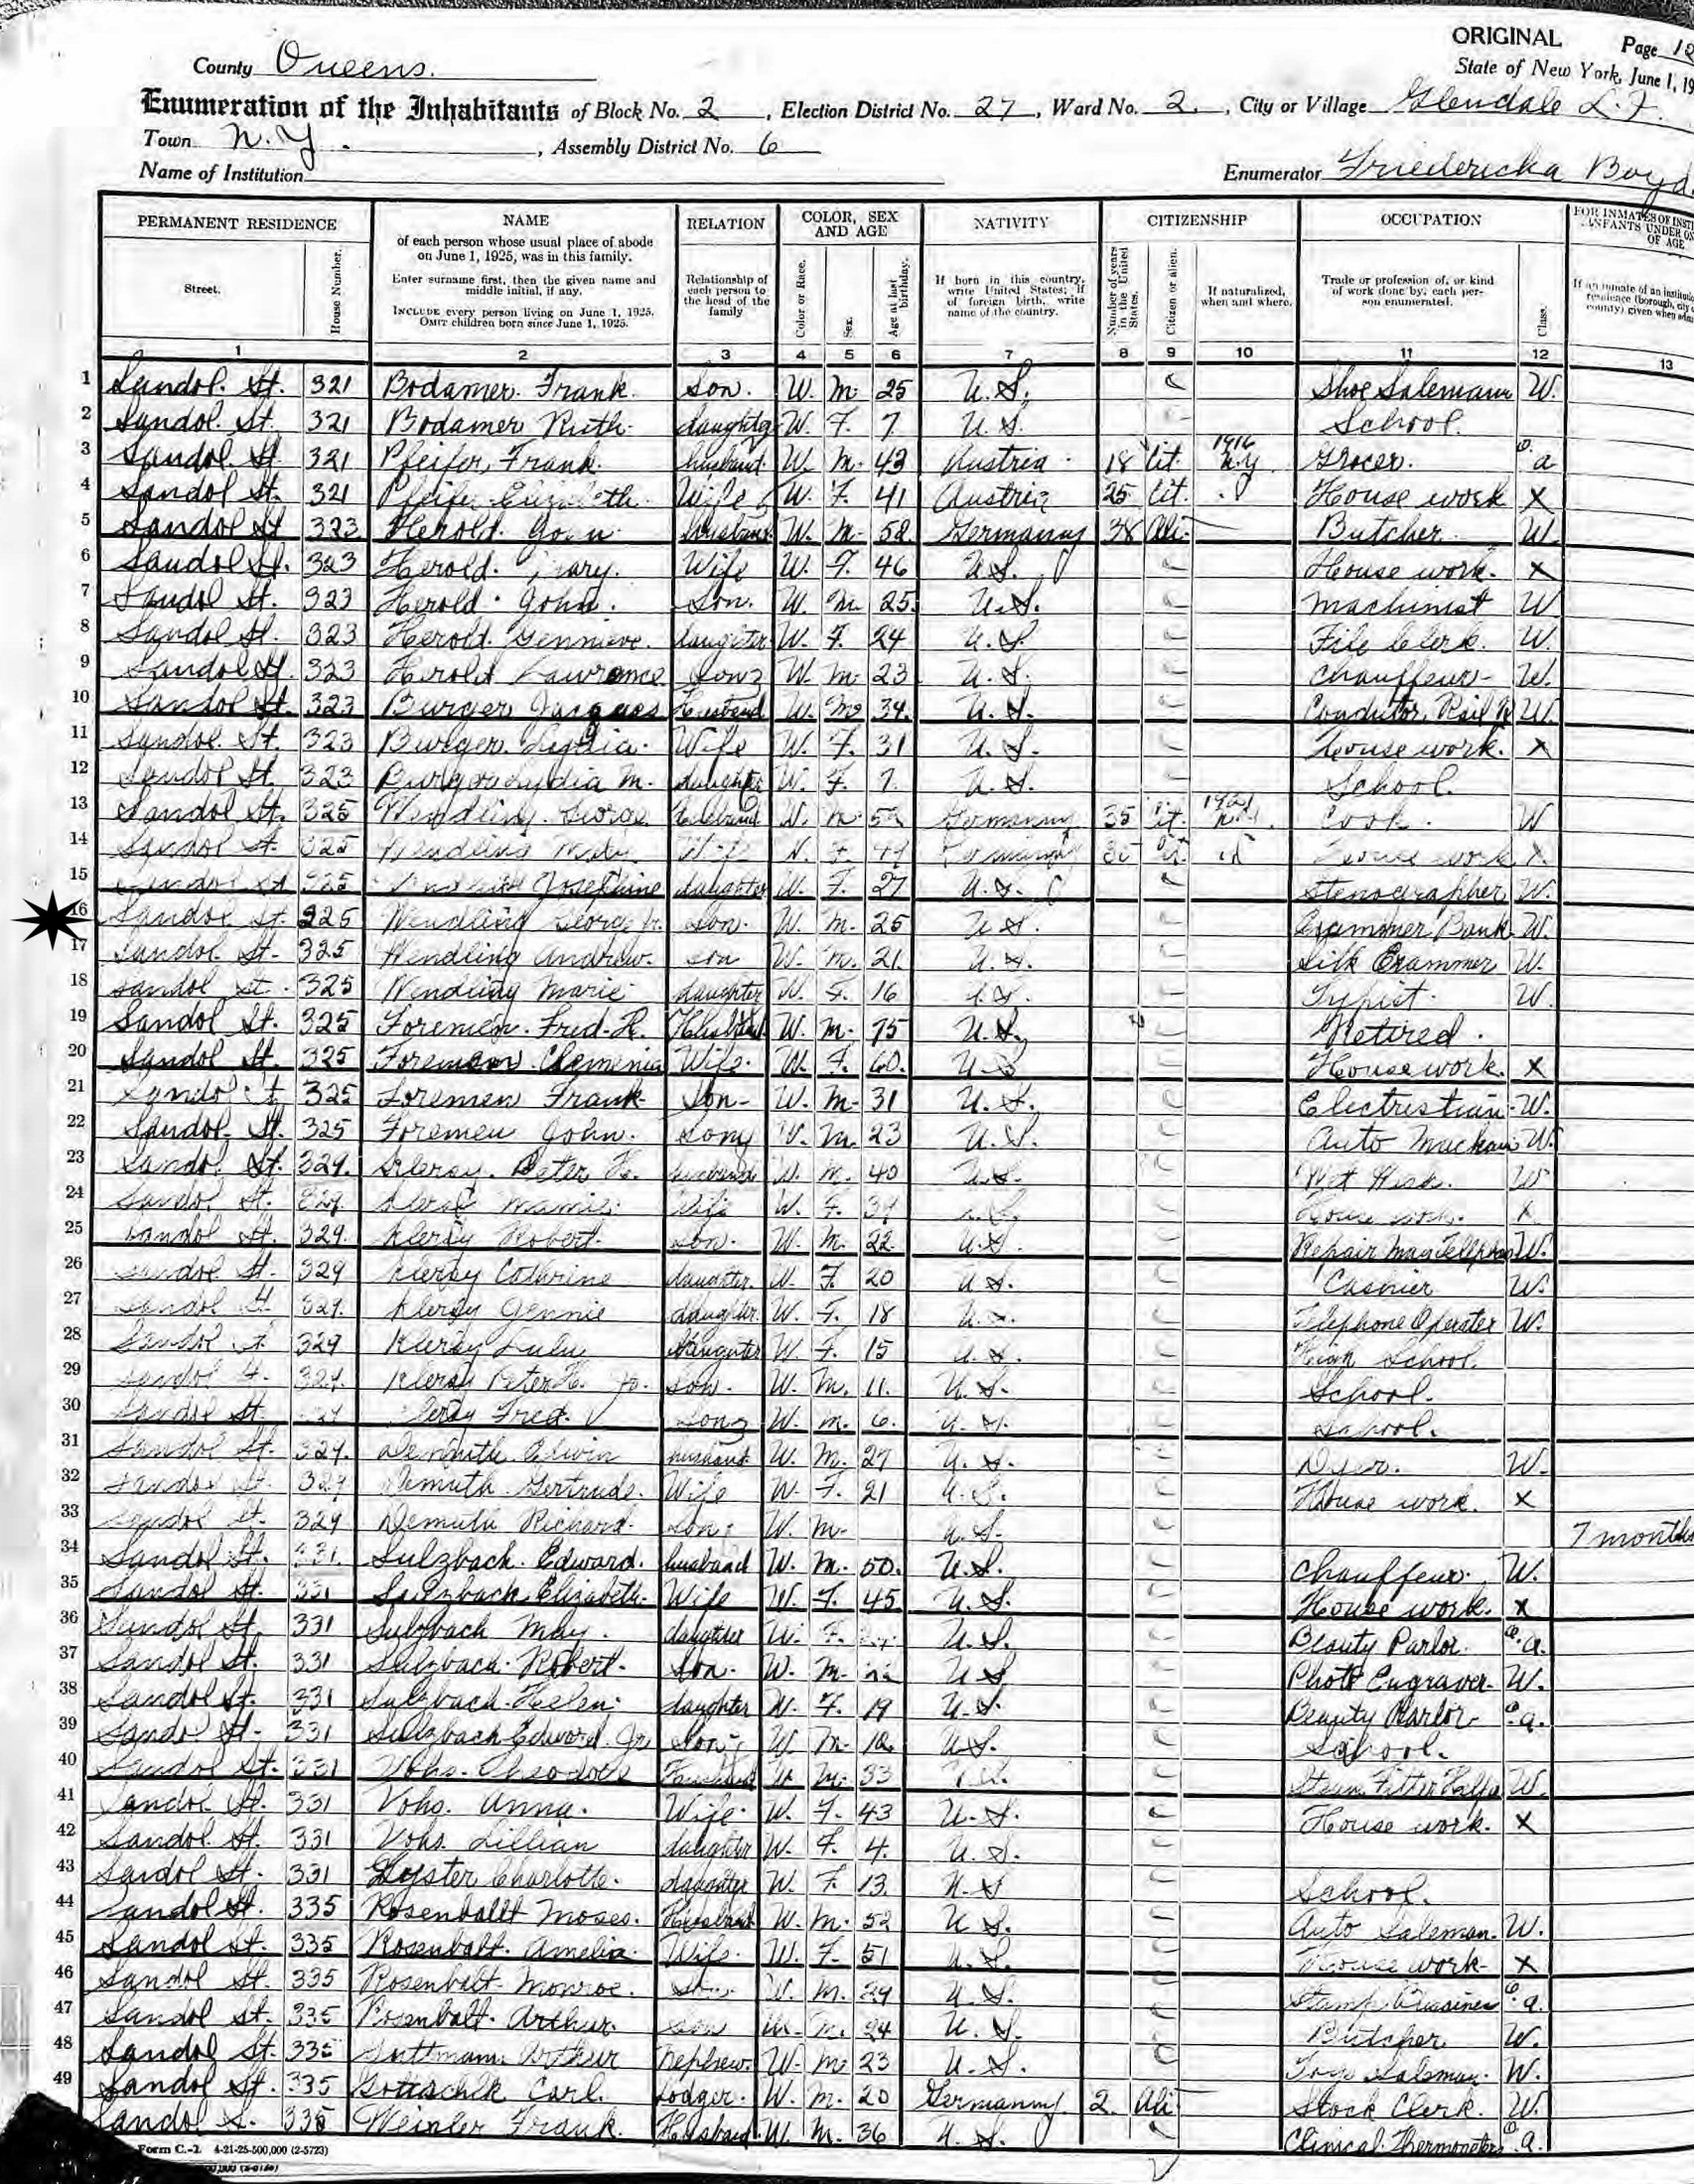 ORIGINAL Page 12
County Queens. State of New York, June 1, 19
Enumeration of the Inhabitants of Block No. 2, Election District No. 27, Ward No. 2., City or Village Glendale L.I.
Town N.Y., Assembly District No. 6
Name of Institution Enumerator Friedericka Boyd
PERMANENT RESIDENCE NAME RELATION COLOR, SEX AND AGE NATIVITY CITIZENSHIP OCCUPATION FOR INMATES OF INSTI INFANTS UNDER ON OF AGE
Street. House Number. of each person whose usual place of abode on June 1, 1925, was in this family. Enter surname first, then the given name and middle initial, if any. INCLUDE every person living on June 1, 1925. OMIT children born since June 1, 1925. Relationship of each person to the head of the family Color or Race. Sex. Age at last birthday. If born in this country, write United States; if of foreign birth, write name of the country. Number of years in the United States. Citizen or alien. If naturalized, when and where. Trade or profession of, or kind of work done by, each person enumerated. Class. If an inmate of an institutio residence (borough, city county) given when adm
1 2 3 4 5 6 7 8 9 10 11 12 13
1 Sandol. St. 321 Bodamer. Frank. Son. W. M 25 U.S. C Shoe Salemann W.
2 Sandol. St. 321 Bodamer Ruth. daughter W. F. 7 U.S. C School.
3 Sandol. St. 321 Pfeifer, Frank. husband. W. M. 43 Austria. 18 Cit. 1916 N.Y. Grocer. O.a
4 Sandol St. 321 Pfeifer Elizabeth. Wife W. F. 41 Austria 25 Cit. House work X
5 Sandol St 323 Herold. John husband W. M. 58 Germany 38 Ali. Butcher W.
6 Sandol St. 323 Herold. Mary. Wife W. F. 46 U.S. C House work. X
7 Sandol St. 323 Herold. John. Son. W. M. 25. U.S. C Machinist W
8 Sandol St. 323 Herold. Gennieve. daughter W. F. 24 U.S. C File Clerk. W.
9 Sandol St. 323 Herold Lawrence Son W. M. 23 U.S. C Chauffeur W.
10 Sandol St. 323 Burger Jacques Husband W. M 34. U.S. C Condutor, Rail R W.
11 Sandol. St. 323 Burger. Lydia. Wife W. F. 31 U.S. C House work. X
12 Sandol St. 323 Burger Lydia M. daughter W. F. 7. U.S. C School.
13 Sandol St. 325 Wendling. George Husband W. M. Germany 35 Cit. Cook. W
14 Sandol St. 325 Wendling Wife W. F. Germany Cit. House work X
15 Sandol St 325 Josephine daughter W. F. 27 U.S. C Stenographer W.
16 Sandol St. 325 Wendling George Jr. Son. W. M. 25 U.S. C Examiner Bank W.
17 Sandol St. 325 Wendling Andrew. son W. M. 21. U.S. C Silk Examiner W.
18 Sandol St. 325 Wendling Marie daughter W. F. 16 U.S. C Typist. W.
19 Sandol St. 325 Foremen. Fred. H. Husband W. M. 75 U.S. C Retired.
20 Sandol St. 325 Foremen Wife. W. F. 60. U.S C House work. X
21 Sandol St 325 Foremen Frank Son W. M. 31 U.S. C Electristian W.
22 Sandol. St. 325 Foremen John. Son W. M. 23 U.S. C Auto W.
23 Sandol St. 329. Peter H. husband W. M. 40 U.S. C W
24 Sandol St. 329. Mamie Wife W. F. U.S. C House work. X
25 Sandol St. 329. Robert. Son. W. M. 22 U.S. C Repair man Telephon W.
26 Sandol St. 329 Cathrine daughter. W. F. 20 U.S. C Cashier W.
27 Sandol St 329. Jennie daughter. W. F. 18 U.S. C Telephone Operater W.
28 Sandol St 329 Lulu daughter W. F. 15 U.S. C High School.
29 Sandol St. 329. Peter H. Jr. son. W. M. 11. U.S. C School.
30 Sandol St. 329 Fred. Son W. M. 6. U.S. C School.
31 Sandol St. 329. Demuth. Edwin husband W. M. 27 U.S. C Dyer. W.
32 Sandol St. 329 Demuth Gertrude. Wife W. F. 21 U.S. C House work. X
33 Sandol St. 329 Demuth Richard. Son. W. M. U.S. C 7 months
34 Sandol St. 331. Sulzbach. Edward. husband W. M. 50. U.S. C Chauffeur. W.
35 Sandol St. 331 Sulzbach. Elizabeth. Wife W. F. 45 U.S. C House work. X
36 Sandol St. 331 Sulzbach May. daughter W. F. U.S. C Beauty Parlor. O.a.
37 Sandol St. 331 Sulzbach. Robert. Son. W. M. U.S C Photo Engraver. W.
38 Sandol St. 331 Sulzbach. Helen. daughter W. F. 19 U.S. C Beauty Parlor O.a.
39 Sandol St. 331 Sulzbach Edward. Jr Son W. M. 12 U.S. C School.
40 Sandol St. 331 Vohs. Theodore Husband W M. 33 U.S. C Steam Fitter W.
41 Sandol St. 331 Vohs. Anna. Wife. W. F. 43 U.S. C House work. X
42 Sandol. St. 331 Vohs. Lillian daughter W. F. 4. U.S. C
43 Sandol St. 331 Charlotte. daughter W. F. 13. U.S C School.
44 Sandol St. 335 Rosenballt Moses. Husband W. M. 52 U.S. C Auto Saleman. W.
45 Sandol St. 335 Rosenbalt. Amelia. Wife. W. F. 51 U.S. C House work X
46 Sandol St. 335 Rosenbalt Monroe. Son. W. M. 29 U.S. C Stamp Bussines O.a.
47 Sandol St. 335 Rosenbalt. Arthur. son W. M. 24 U.S. C Butcher W.
48 Sandol St. 335 Arthur nephew. W. M 23 U.S. C Saleman. W.
49 Sandol St. 335 Carl. Lodger. W. M. 20 Germany 2 Ali Stock Clerk. W.
Sandol S. 335 Weinler Frank. Husband. W. M. 36 U.S. C Clinical. Thermometers O.a.
Form C.-2 4-21-25-500,000 (2-5723)